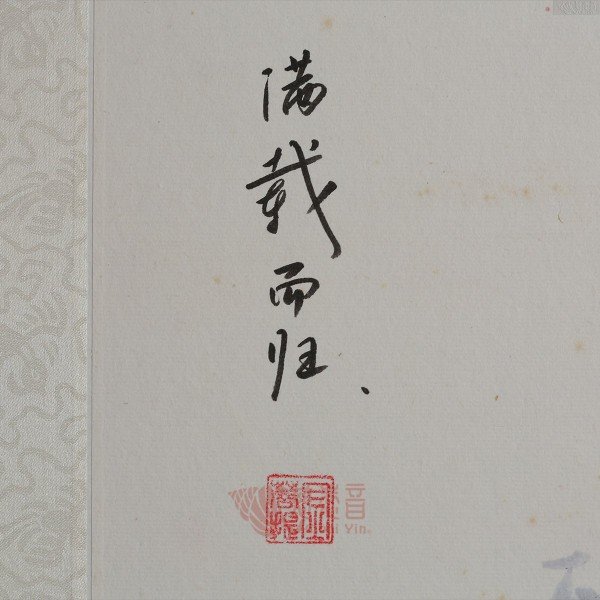 满载而归、
音
i Yin